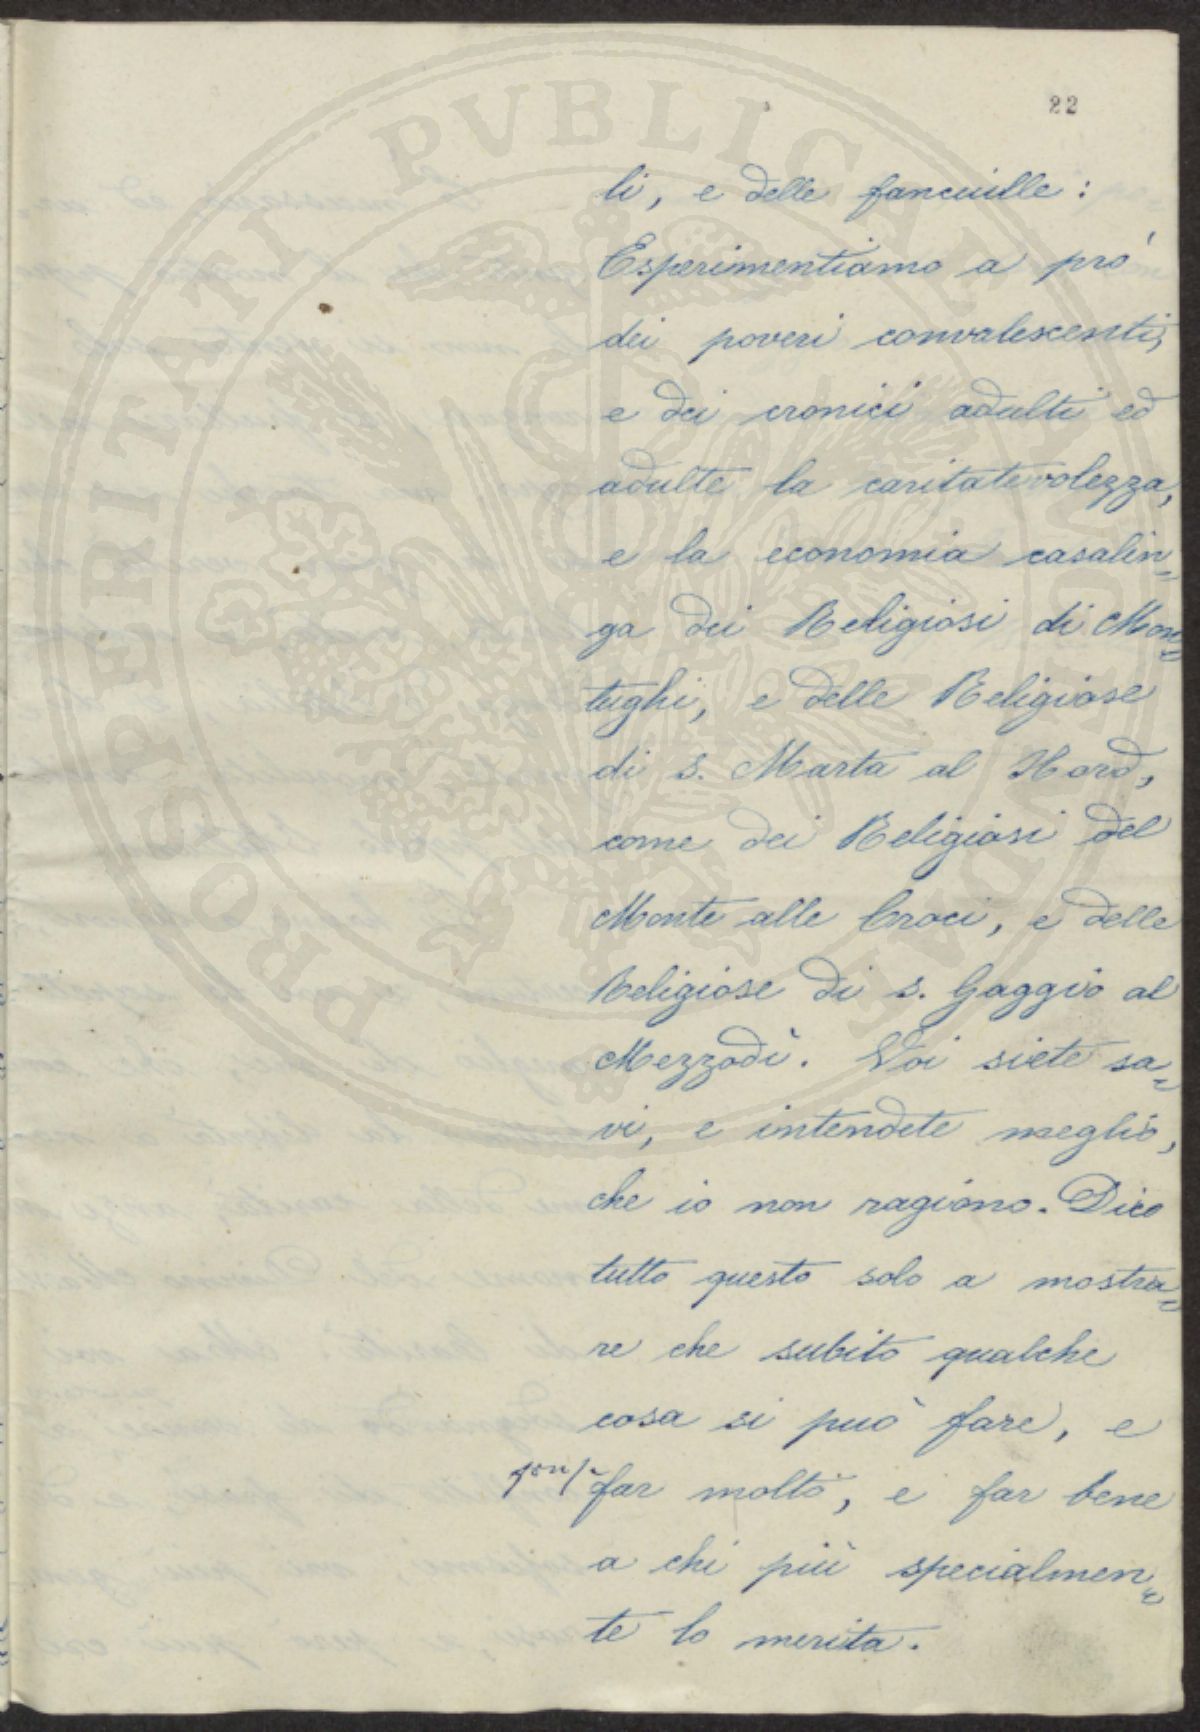 22
li, e delle fanciulle:
Esperimentiamo a pró
dei poveri convalescenti,
e dei cronici adulti ed
adulte la caritatevolezza,
e la economia casalin=
ga dei Religiosi di Mon=
tughi, e delle Religiose
di S. Marta al Nord,
come dei Religiosi del
Monte alle Croci, e delle
Religiose di S. Gaggio al
Mezzodì. Voi siete sa=
vi, e intendete meglio,
che io non ragiono. Dico
tutto questo solo a mostra=
re che subito qualche
cosa si può fare, e
far molto, e far bene
a chi più specialmen=
te lo merita.
PROSPERITATI PVBLICAE